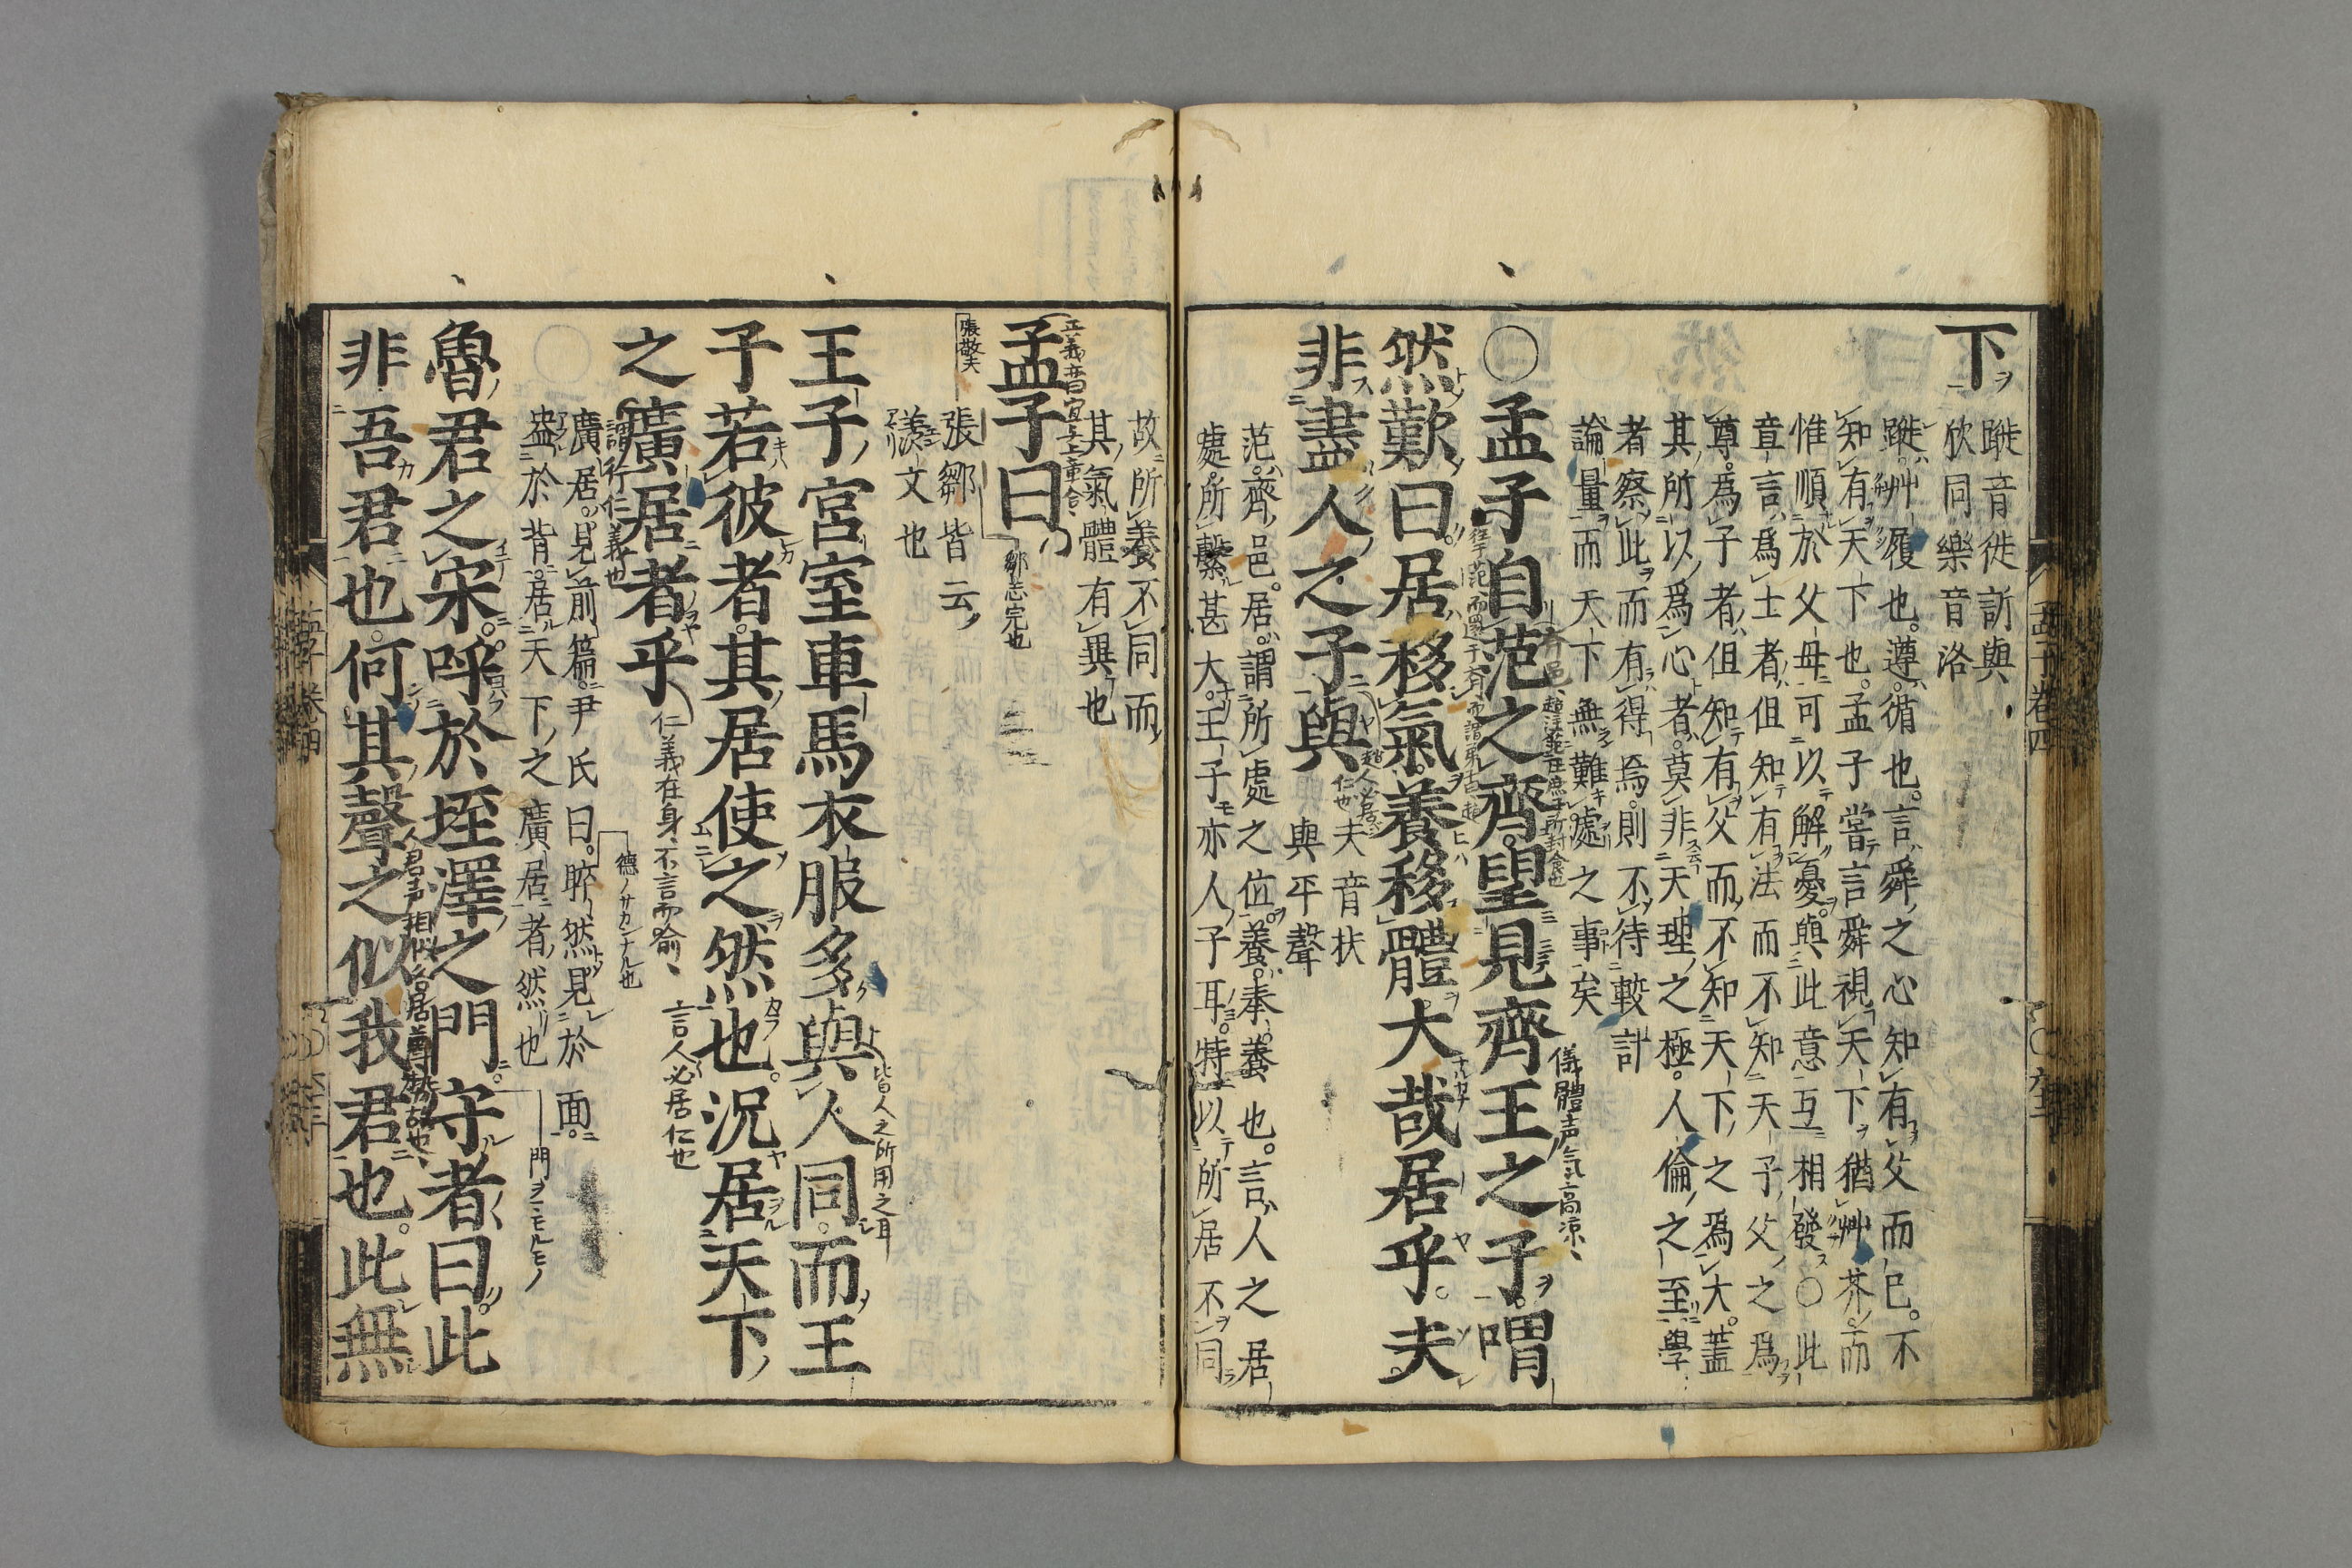 下
蹝音徙訢與
欣同樂音洛
蹝艸履也遵循也言舜之心知有父而已不
知有天下也孟子嘗言舜視天下猶艸芥而
惟順於父母可以解憂與此意互相發○此
章言爲士者但知有法而不知天子父之爲
尊爲子者但知有父而不知天下之爲大蓋
其所以爲心者莫非天理之極人倫之至學
者察此而有得焉則不待較計
論量而天下無難處之事矣
○孟子自范之齊望見齊王之子喟
然歎曰居移氣養移體大哉居乎夫
非盡人之子與
夫音扶
與平聲
范齊邑居謂所處之位養奉養也言人之居
處所繫甚大王子亦人子耳特以所居不同
故所養不同而
其氣體有異也
孟子曰
張鄒皆云
羨文也
王子宮室車馬衣服多與人同而王
子若彼者其居使之然也況居天下
之廣居者乎
廣居見前篇尹氏曰睟然見於面
盎於背居天下之廣居者然也
魯君之宋呼於垤澤之門守者曰此
非吾君也何其聲之似我君也此無
孟子卷四
張敬夫
仁義在身不言而喻
言人必居仁也
謂行仁義也
皆人之所用之耳
德ノサカンナル也
門ヲマモルモノ
儀體声氣高凉